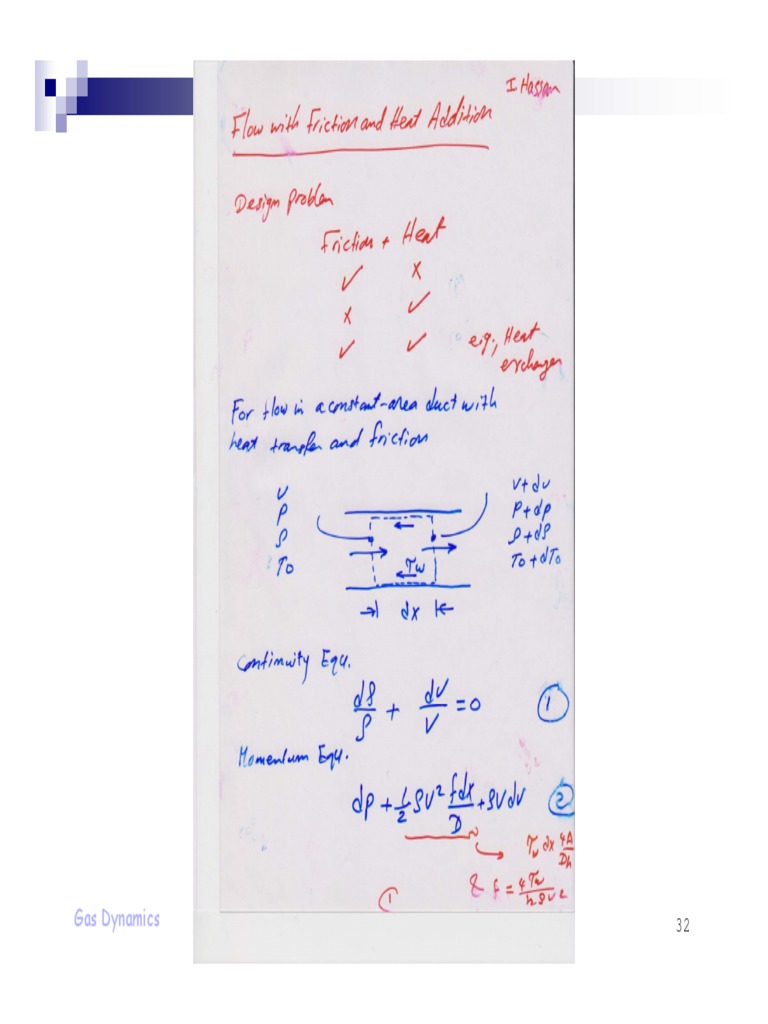 I Hassan
Flow with Friction and Heat Addition
Design problem
Friction + Heat
✓ x
x ✓
✓ ✓ e.g., Heat
exchanger
For flow in a constant-area duct with
heat transfer and friction
V V+dV
P P+dp
ρ ρ+dρ
To To+dTo
τw
dx
Continuity Equ.
dρ/ρ + dV/V = 0 ①
Momentum Equ.
dp + 1/2 ρV² fdx/D + ρVdV ②
τw dx 4A/Dh
& f = 4τw/½ρV²
①
Gas Dynamics
32